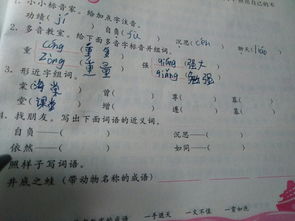 1. 小小标音家。给加点字注音。
功绩(jí) 自负(fù) 沉思(chén) 聊天(liáo)
2. 多音教室。给下面多音字标音并组词。
重 cóng (重复) 强 qiáng (强大)
zòng (重量) qiǎng (勉强)
3. 形近字组词。
棠(海棠) 曾( ) 逐( ) 幕( )
堂(课堂) 增( ) 遂( ) 暮( )
4. 找朋友。写出下面词语的近义词。
自负——( ) 沉思——( )
依然——( ) 如同——( )
照样子写词语。
井底之蛙(带动物名称的成语)
一手遮天 一文不值 一贫如洗